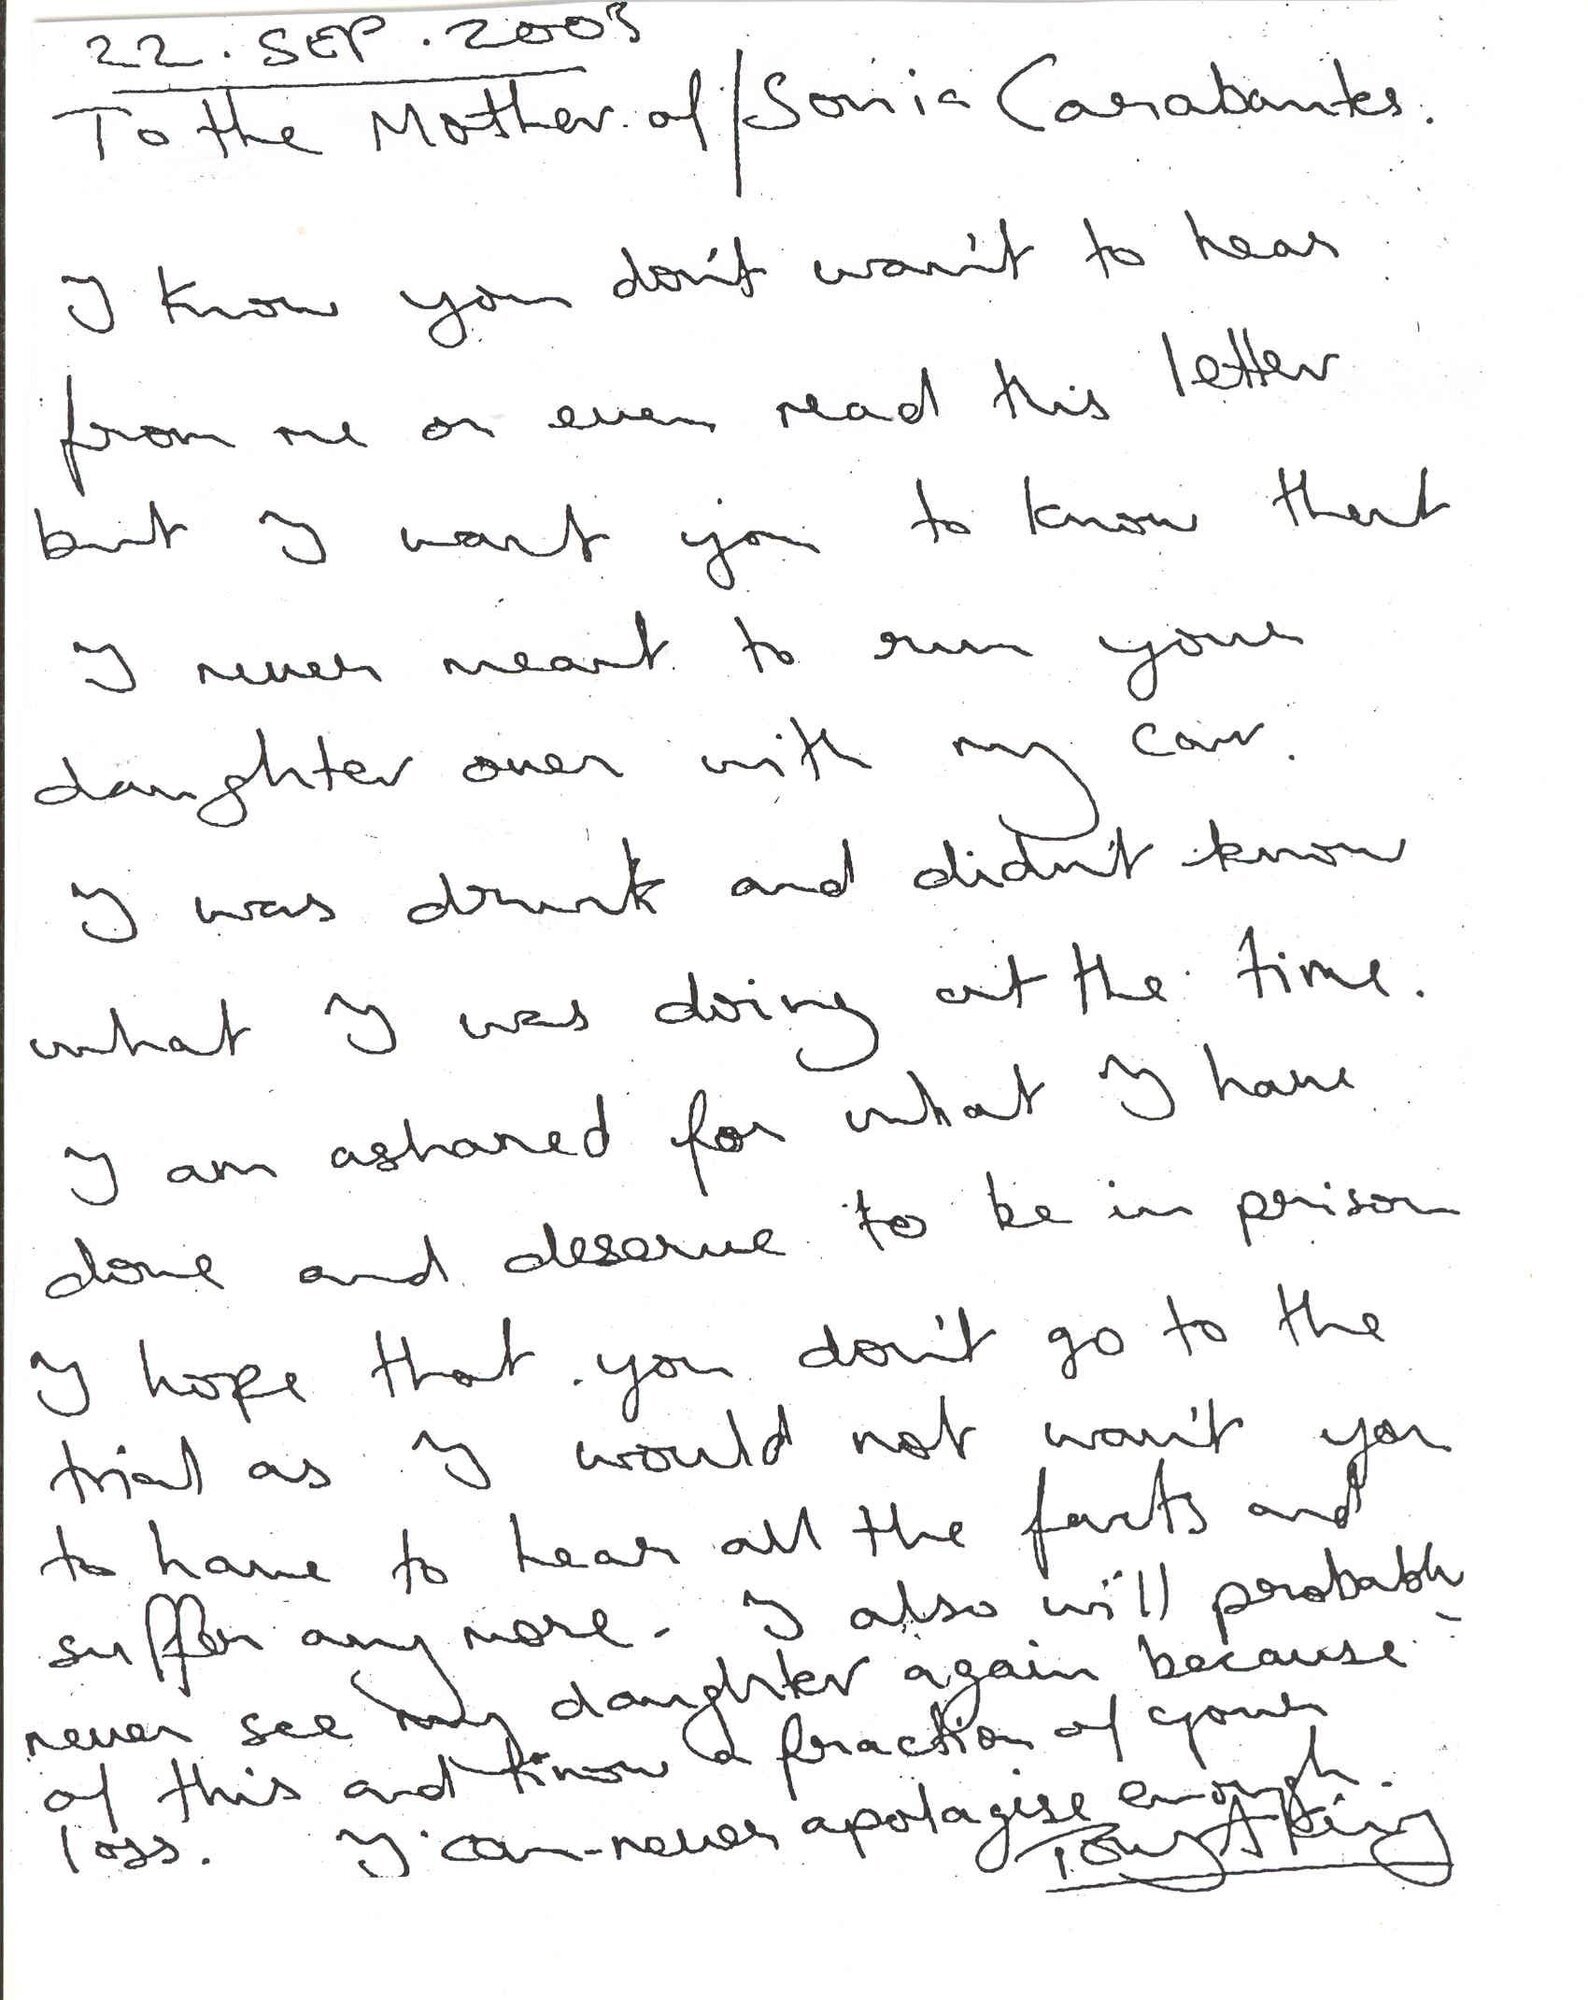 22. SEP. 2003
To the Mother of / Sonia Carabantes.
I know you don't wan't to hear
from me or even read this letter
but I want you to know that
I never meant to run your
daughter over with my car.
I was drunk and didn't know
what I was doing at the time.
I am ashamed for what I have
done and deserve to be in prison
I hope that you don't go to the
trial as I would not wan't you
to have to hear all the facts and
suffer any more. I also will probably
never see my daughter again because
of this and know a fraction of your
loss. I can never apologise enough.
Tony A King